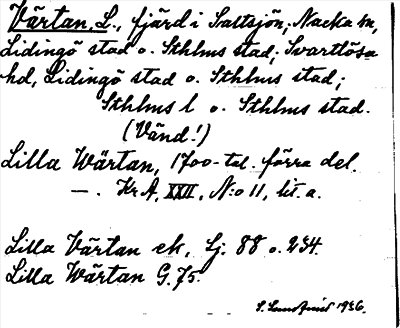 Värtan, L., fjärd i Saltsjön; Nacka kn,
Lidingö stad o. Sthlms stad; Svartlösa
hd, Lidingö stad o. Sthlms stad;
Sthlms l o. Sthlms stad.
(Vänd!)
Lilla Wärtan, 1700-tal. förra del.
—. Kr A, XXII, N:o 11, lit. a.
Lilla Värtan ek, Lj. 88 o. 234.
Lilla Wärtan G. 75.
S. Lundquist 1936.